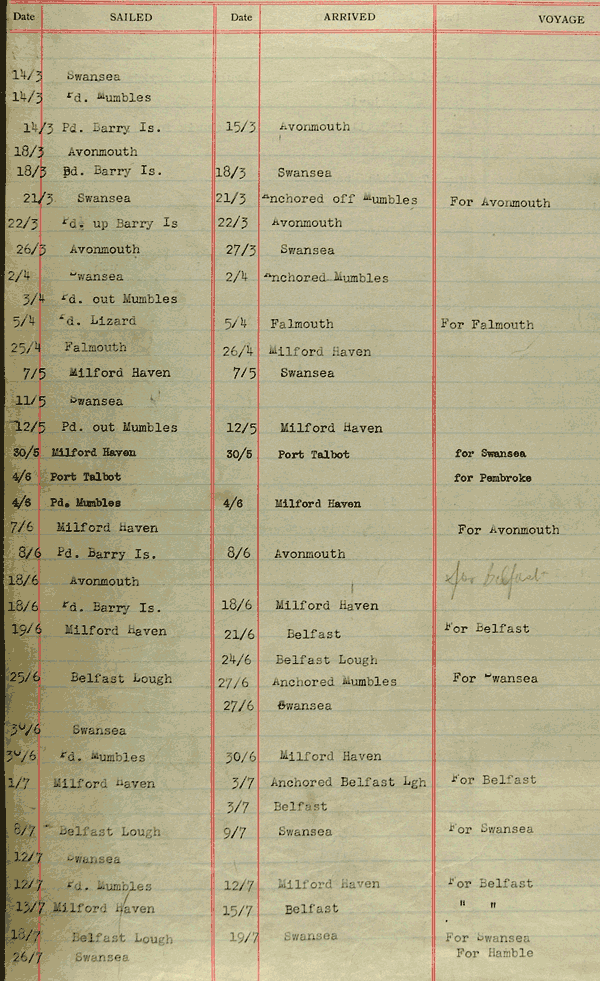 Date SAILED Date ARRIVED VOYAGE
14/3 Swansea
14/3 Pd. Mumbles
14/3 Pd. Barry Is. 15/3 Avonmouth
18/3 Avonmouth
18/3 Pd. Barry Is. 18/3 Swansea
21/3 Swansea 21/3 Anchored off Mumbles For Avonmouth
22/3 Pd. up Barry Is 22/3 Avonmouth
26/3 Avonmouth 27/3 Swansea
2/4 Swansea 2/4 Anchored Mumbles
3/4 Pd. out Mumbles
5/4 Pd. Lizard 5/4 Falmouth For Falmouth
25/4 Falmouth 26/4 Milford Haven
7/5 Milford Haven 7/5 Swansea
11/5 Swansea
12/5 Pd. out Mumbles 12/5 Milford Haven
30/5 Milford Haven 30/5 Port Talbot for Swansea
4/6 Port Talbot for Pembroke
4/6 Pd. Mumbles 4/6 Milford Haven
7/6 Milford Haven For Avonmouth
8/6 Pd. Barry Is. 8/6 Avonmouth
18/6 Avonmouth for belfast
18/6 Pd. Barry Is. 18/6 Milford Haven
19/6 Milford Haven 21/6 Belfast For Belfast
24/6 Belfast Lough
25/6 Belfast Lough 27/6 Anchored Mumbles For Swansea
27/6 Swansea
30/6 Swansea
30/6 Pd. Mumbles 30/6 Milford Haven
1/7 Milford Haven 3/7 Anchored Belfast Lgh For Belfast
3/7 Belfast
8/7 Belfast Lough 9/7 Swansea For Swansea
12/7 Swansea
12/7 Pd. Mumbles 12/7 Milford Haven For Belfast
13/7 Milford Haven 15/7 Belfast " "
18/7 Belfast Lough 19/7 Swansea For Swansea
26/7 Swansea For Hamble